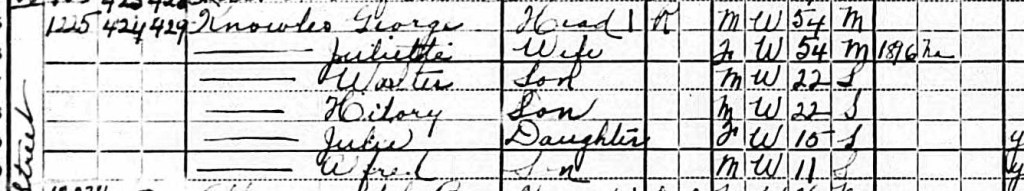 1225 424 429 Knowles George Head 1 R M W 54 M
Juliette Wife F W 54 M 1896
Walter Son M W 22 S
Hilory Son M W 22 S
Julie Daughter F W 15 S y
Alfred Son M W 11 S y
Street